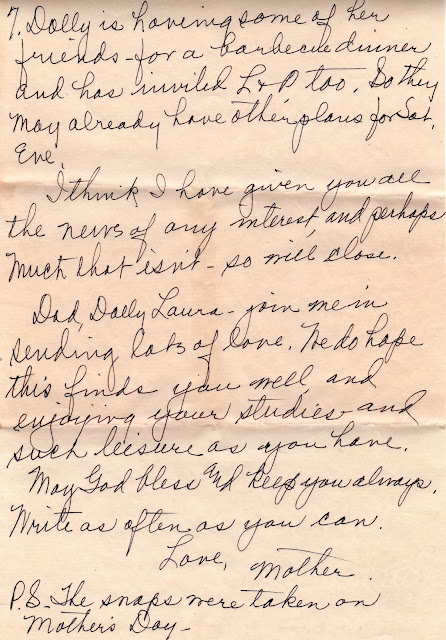 7. Dolly is having some of her
friends - for a barbecue dinner
and has invited L & P too. So they
may already have other plans for Sat.
Eve.
I think I have given you all
the news of any interest, and perhaps
much that isn't - so will close.
Dad, Dolly Laura - join me in
sending lots of love. We do hope
this finds you well and
enjoying your studies - and
such leisure as you have.
May God bless and keep you always.
Write as often as you can.
Love, Mother.
P.S. The snaps were taken on
Mother's Day -